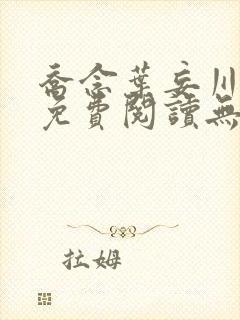 喬念葉妄川
免費閱讀無
拉姆